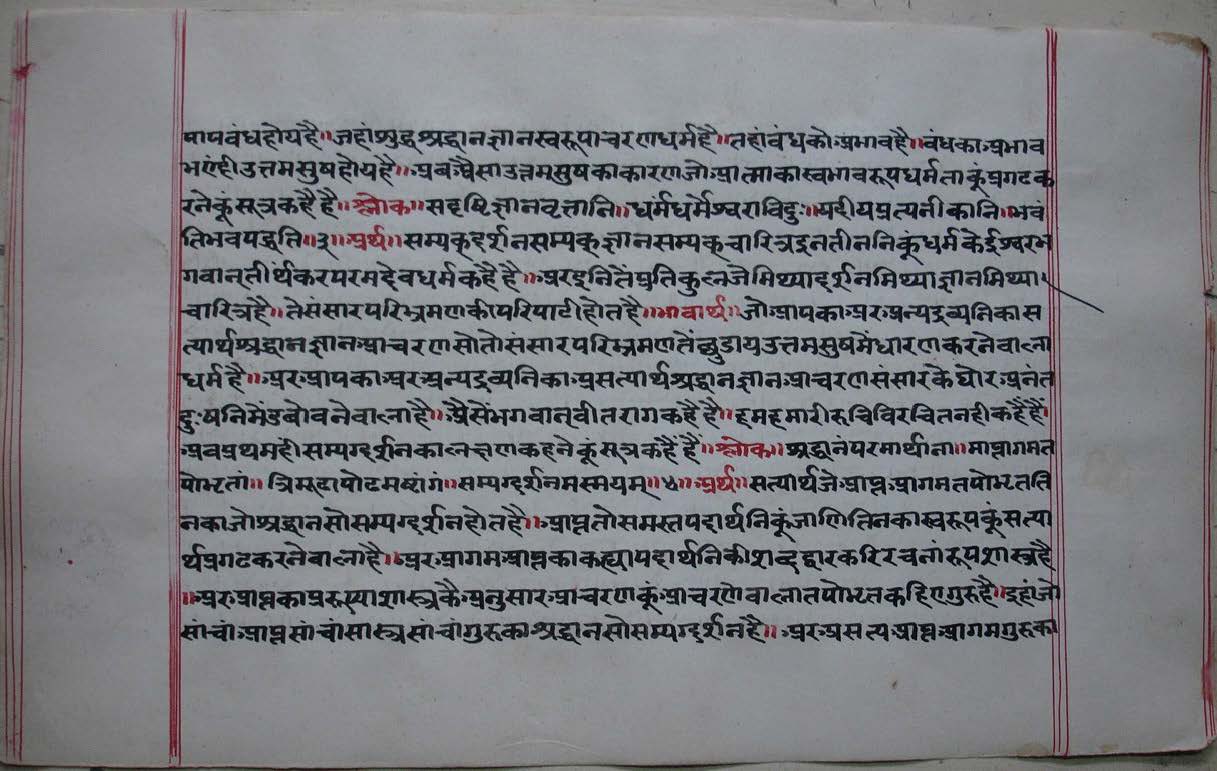 पापबंधहोयहै॥जहांशुद्धश्रद्धानज्ञानस्वरूपाचरणधर्महै॥तहांबंधकोअभावहै॥बंधकाअभाव
भएंहीउत्तमसुषहोयहै॥अबअैसाउत्तमसुषकाकारणजोआत्माकास्वभावरूपधर्मताकूंप्रगटक
रनेकूंसूत्रकहैहै॥श्लोक॥सदृष्टिज्ञानवृत्तानि॥धर्मंधर्मेश्वराविदुः॥यदीयप्रत्यनीकानि॥भवं
तिभवपद्धति॥३॥अर्थ॥सम्यक्दर्शनसम्यक्ज्ञानसम्यक्चारित्रइनतीननिकूंधर्मकेईश्वरभ
गवान्तीर्थकरपरमदेवधर्मकहैहै॥अरइनितेंप्रतिकुलजेमिथ्यादर्शनमिथ्याज्ञानमिथ्या
चारित्रहै॥तेसंसारपरिभ्रमणकीपरिपाटीहोतहै॥भावार्थ॥जोआपकाअरअन्यद्रव्यनिकास
त्यार्थश्रद्धानज्ञानआचरणसोतोसंसारपरिभ्रमणतेंछुडायउत्तमसुषमेंधारणकरनेवाला
धर्महै॥अरआपकाअरअन्यद्रव्यनिकाअसत्यार्थश्रद्धानज्ञानआचरणसंसारकेघोरअनंत
दुःषनिमेंडबोवनेवालाहै॥अैसेंभगवान्वीतरागकहैहै॥हमहमारीरूचिविरचितनहीकहैहैं॥
अबप्रथमहीसम्यग्दर्शनकालक्षणकहनेकूंसूत्रकहैहैं॥श्लोक॥श्रद्धानंपरमार्थाना॥माप्तागमत
पोभृतां॥त्रिमूढापोढमष्टांगं॥सम्यग्दर्शनमस्मयम्॥४॥अर्थ॥सत्यार्थजेआप्तआगमतपोभृतति
नकाजोश्रद्धानसोसम्यग्दर्शनहोतहै॥आप्ततोसमस्तपदार्थनिकूंजाणितिनकास्वरूपकूंसत्या
र्थप्रगटकरनेवालाहै॥अरआगमआप्तकाकह्यापदार्थनिकीशब्दद्वारकरिरचनांरूपशास्त्रहै
॥अरआप्तकाप्ररूप्याशास्त्रकैअनुसारआचरणकूंआचरणेवालातपोभृतकहिएगुरूहै॥इहांजो
सांचांआप्तसांचांसास्त्रसांचांगुरूकाश्रद्धानसोसम्यग्दर्शनहै॥अरअसत्यआप्तआगमगुरूका